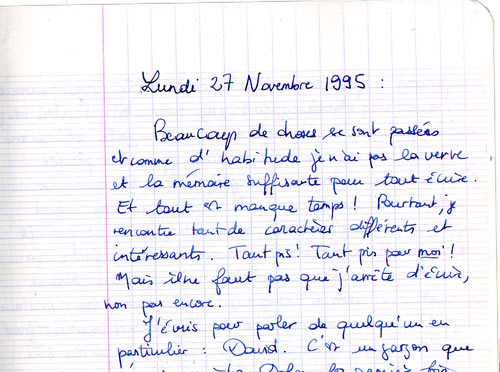 Lundi 27 Novembre 1995 :
Beaucoup de choses se sont passées
et comme d'habitude je n'ai pas la verve
et la mémoire suffisante pour tout écrire.
Et tout est manque temps ! Pourtant, je
rencontre tant de caractères différents et
intéressants. Tant pis ! Tant pis pour moi !
Mais il ne faut pas que j'arrête d'écrire,
non pas encore.
J'écris pour parler de quelqu'un en
particulier : David. C'est un garçon que